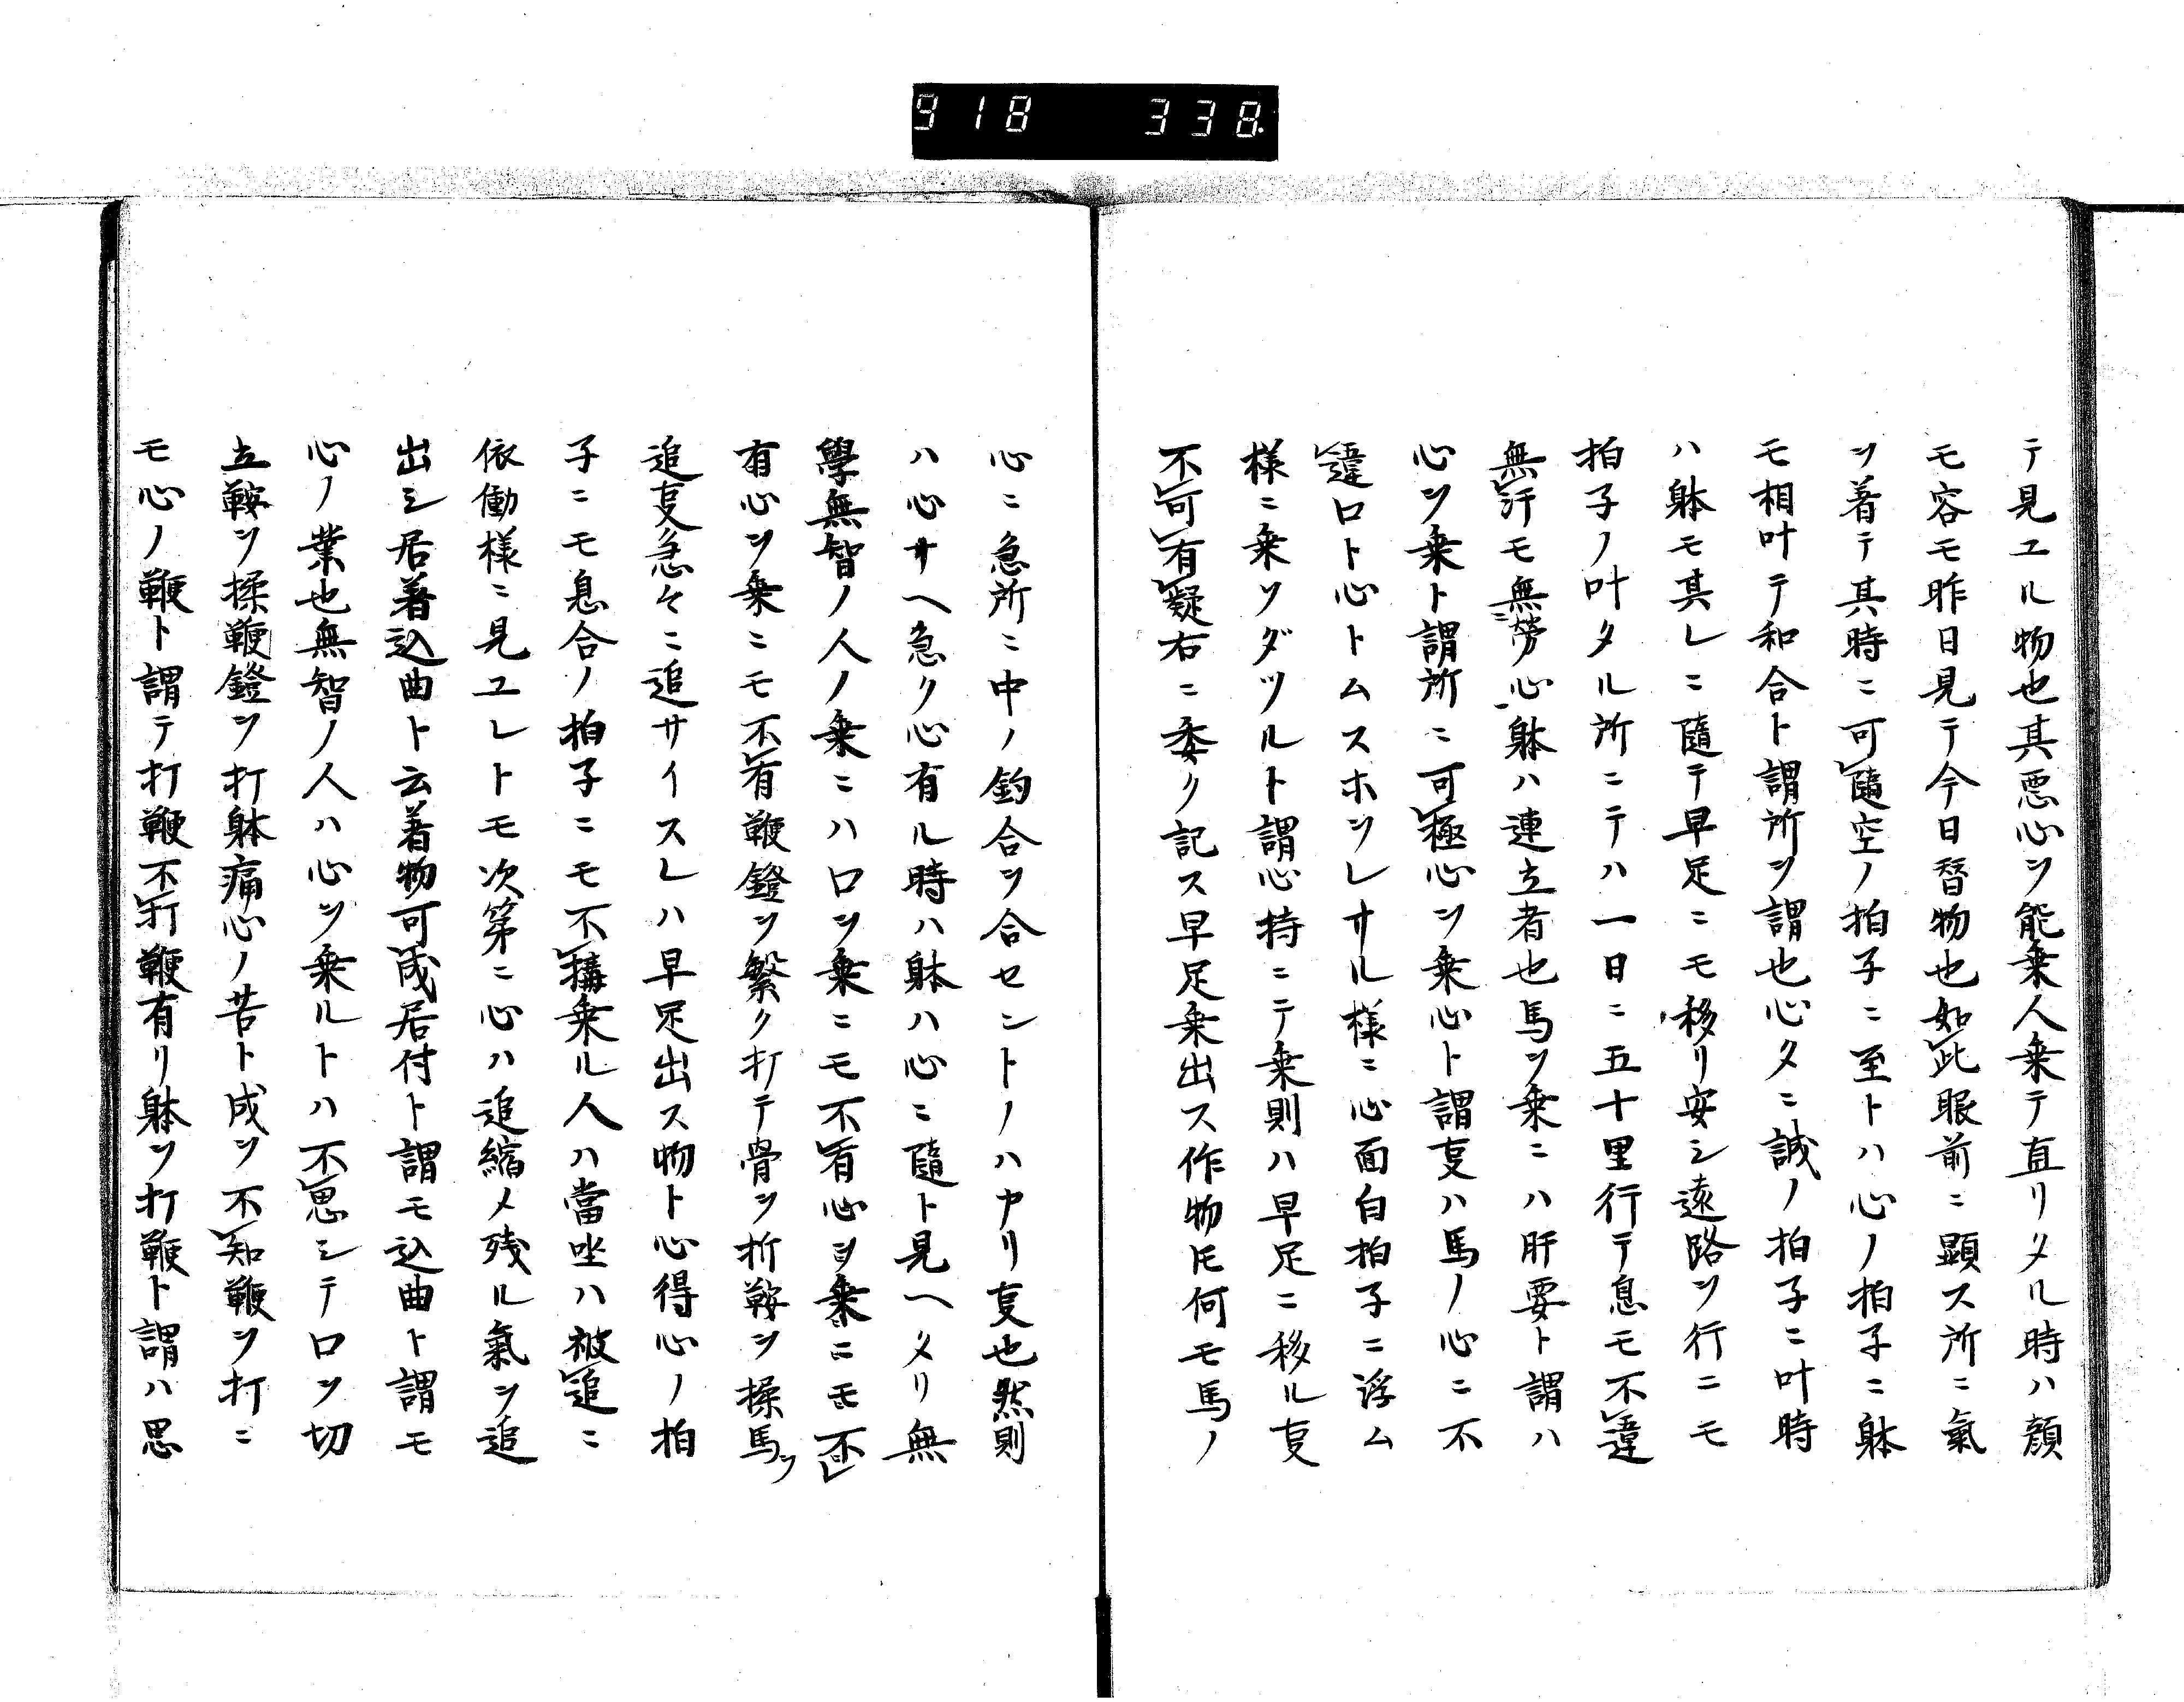 918 338
テ見ユル物也其悪心ヲ能乗人乗テ直リタル時ハ顔
モ容モ昨日見テ今日替物也如㆑此眼前ニ顕ス所ニ氣
ヲ着テ其時ニ可㆑隨空ノ拍子ニ至トハ心ノ拍子ニ躰
モ相叶テ和合ト謂所ヲ謂也心タニ誠ノ拍子ニ叶時
ハ躰モ其レニ隨テ早足ニモ移リ安シ遠路ヲ行ニモ
拍子ノ叶タル所ニテハ一日ニ五十里行テ息モ不㆑違
無㆑汗モ無㆑労心躰ハ連立者也馬ヲ乗ニハ肝要ト謂ハ
心ヲ乗ト謂所ニ可㆑極心ヲ乗心ト謂㕝ハ馬ノ心ニ不
㆑違ロト心トムスホヲレサル様ニ心面白拍子ニ浮ム
様ニ乗ヲダツルト謂心持ニテ乗則ハ早足ニ移ル㕝
不㆑可㆑有㆑疑右ニ委ク記ス早足乗出ス作物𪜈何モ馬ノ
心ニ急所ニ中ノ釣合ヲ合セントノハヤリ㕝也然則
ハ心サヘ急ク心有ル時ハ躰ハ心ニ隨ト見ヘタリ無
學無智ノ人ノ乗ニハロヲ乗ニモ不㆑有心ヲ乗ニモ不㆑
有心ヲ乗ニモ不㆑有鞭鐙ヲ繁ク打テ骨ヲ折鞍ヲ揉馬ヲ
追㕝急々ニ追サイスレハ早足出ス物ト心得心ノ拍
子ニモ息合ノ拍子ニモ不㆑搆乗ル人ハ當坐ハ被㆑追ニ
依働様ニ見ユレトモ次第ニ心ハ追縮メ残ル氣ヲ追
出シ居着込曲ト云着物可㆑成居付ト謂モ込曲ト謂モ
心ノ業也無智ノ人ハ心ヲ乗ルトハ不㆑思シテロヲ切
立鞍ヲ揉鞭鐙ヲ打躰痛心ノ苦ト成ヲ不㆑知鞭ヲ打ニ
モ心ノ鞭ト謂テ打鞭不㆑打鞭有リ躰ヲ打鞭ト謂ハ思